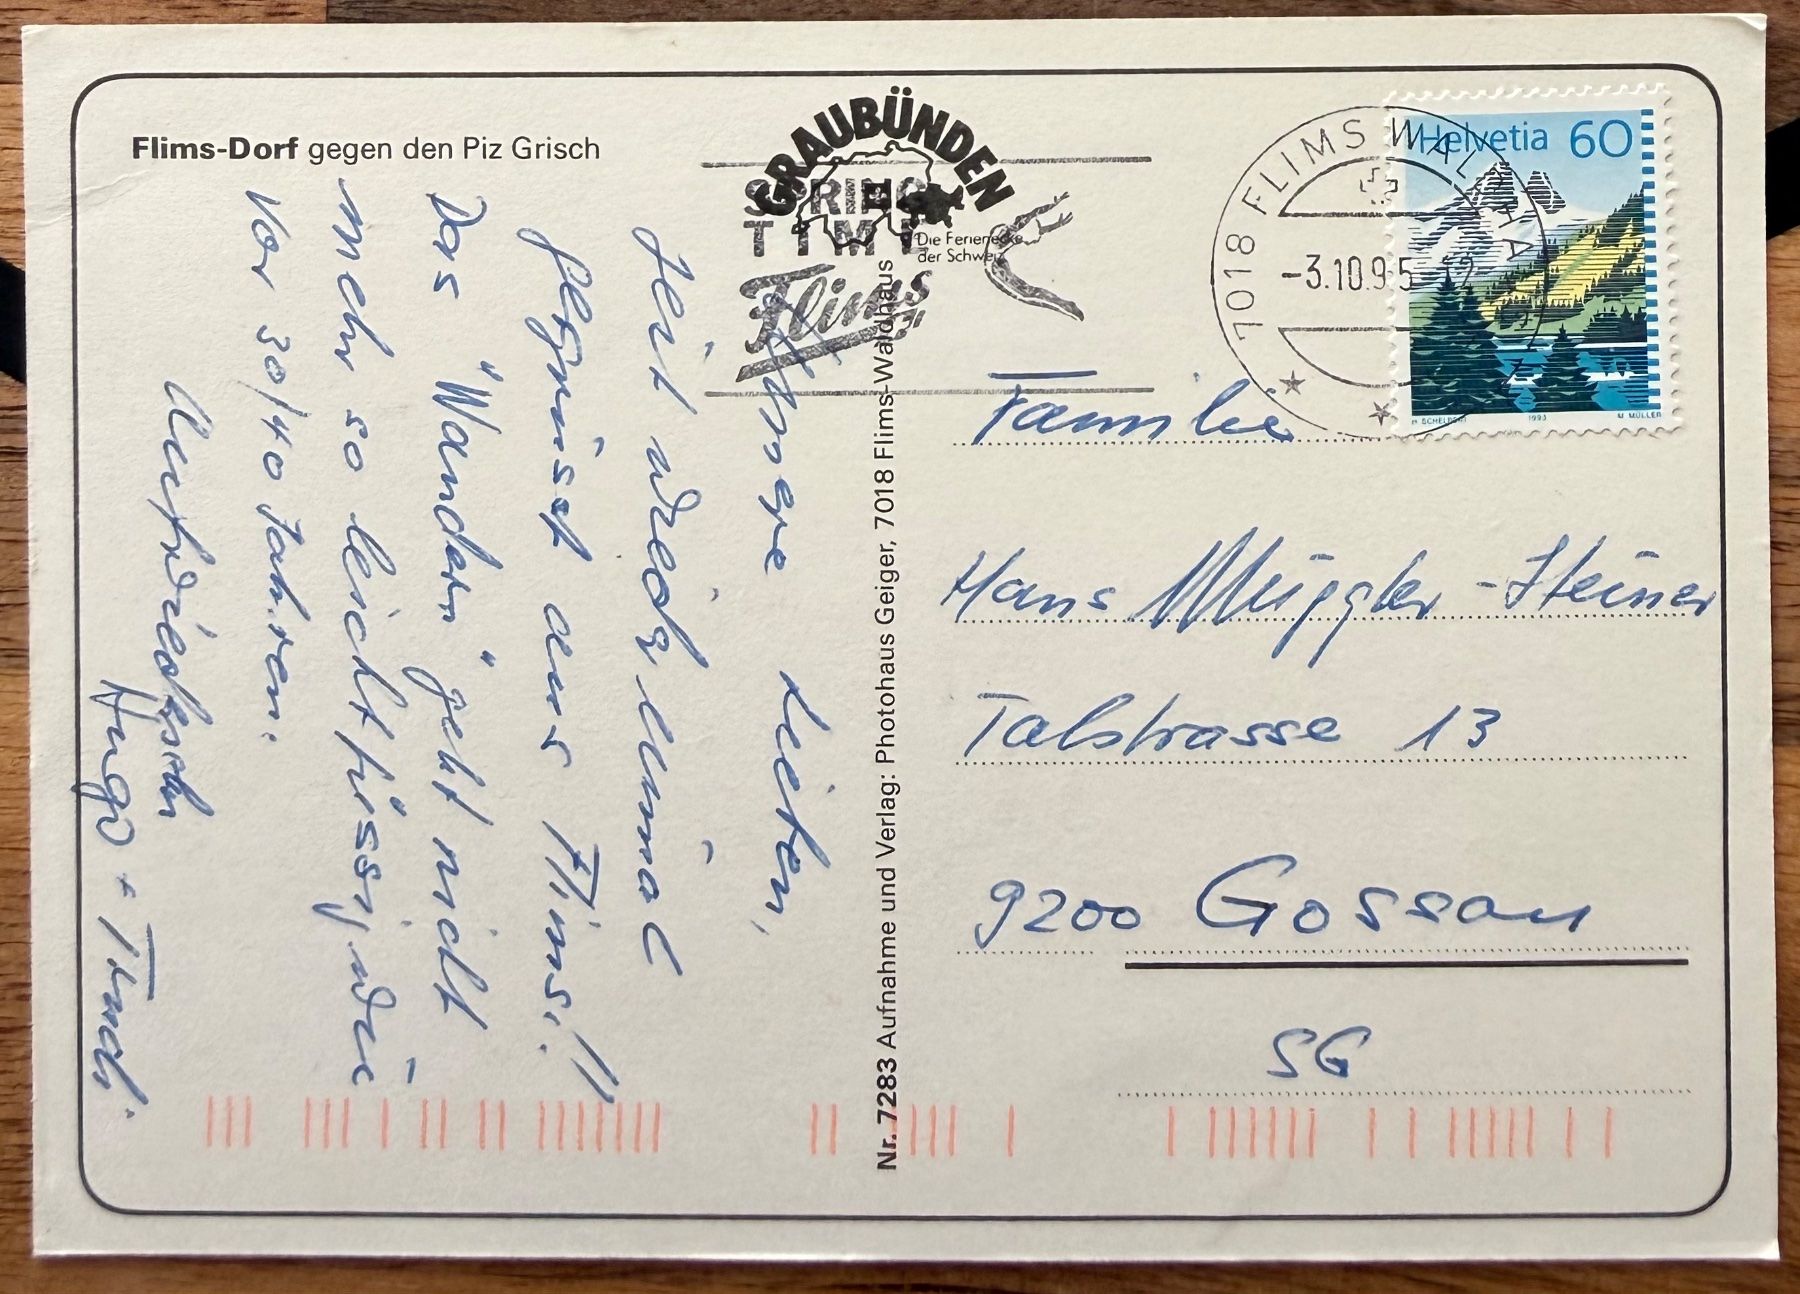 Flims-Dorf gegen den Piz Grisch
GRAUBÜNDEN
Die Ferienecke
der Schweiz
SPRING
TIME
Flims
7018 FLIMS WALDHAUS
-3.10.95
Helvetia 60
H. SCHELBERT 1993 M. MÜLLER
Unsere Lieben,
seid wieder einmal
gegrüsst aus Flims!!
Das "Wandern" geht nicht
mehr so leichtfüssig, wie
vor 30/40 Jahren.
Hugo + Trudi.
Nr. 7283 Aufnahme und Verlag: Photohaus Geiger, 7018 Flims-Waldhaus
Familie
Hans Müggler-Steiner
Talstrasse 13
9200 Gossau
SG